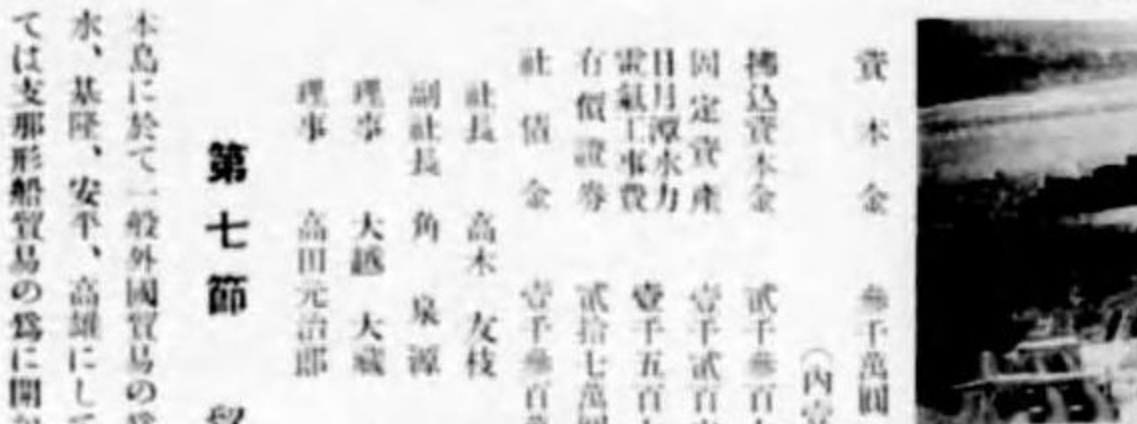 資本金 參千萬圓
(內壹
拂込資本金 貳千參百
固定資產 壹千貳百
日月潭水力
電氣工事費 壹千五百
有價證券 貳拾七萬
社債金 壹千參百
社長 高木友枝
副社長 角泉源
理事 大越大藏
理事 高田元治郎
第七節
本島に於て一般外國貿易の爲
水、基隆、安平、高雄にして
ては支那形船貿易の爲に開